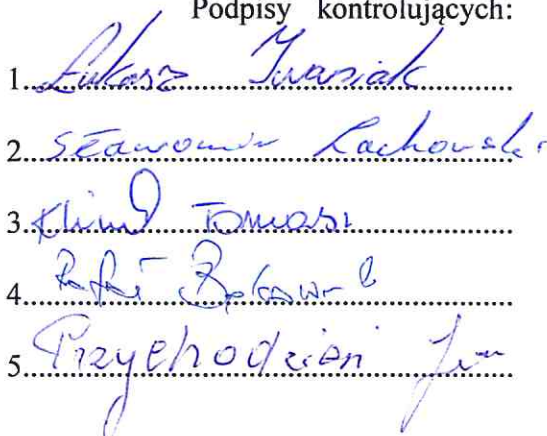 Podpisy kontrolujących:
1. Łukasz Iwasiak
2. Sławomir Lachowski
3. Klimek Tomasz
4. Rafał
5. Przychodzień